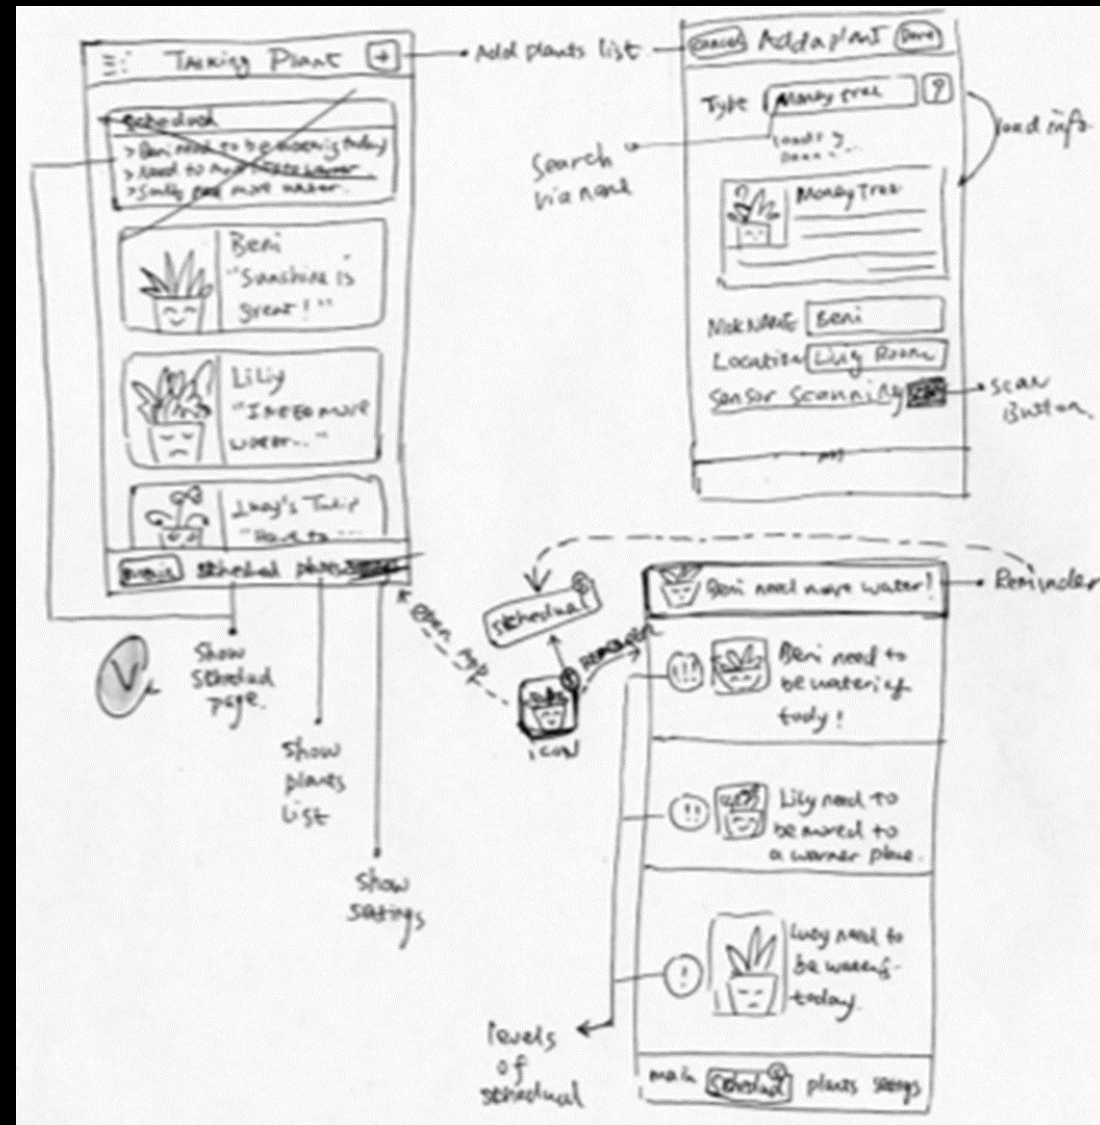 Talking Plant
+
Add plants list
Schedual
> Beni need to be watering today
> Need to
> more water.
Beni
"Sunshine is
great! "
Liliy
"I need more
water.. "
Lucy's Tulip
"Have to ...
main schedual plants
Show
schedual
page.
Show
plants
list
Show
settings
V
Cancel Add a plant Done
Type Money tree ?
load info
Search
via name
Money Tree
NickNAME Beni
Location Living Room
Sensor Scanning scan
scan
Button.
open App
schedual
Reminder
icon
Beni need more water!
Reminder
!!! Beni need to
be watering
tody !
!! Lily need to
be moved to
a warmer place.
! Lucy need to
be watering
today.
levels
of
schedual
main schedual plants settings